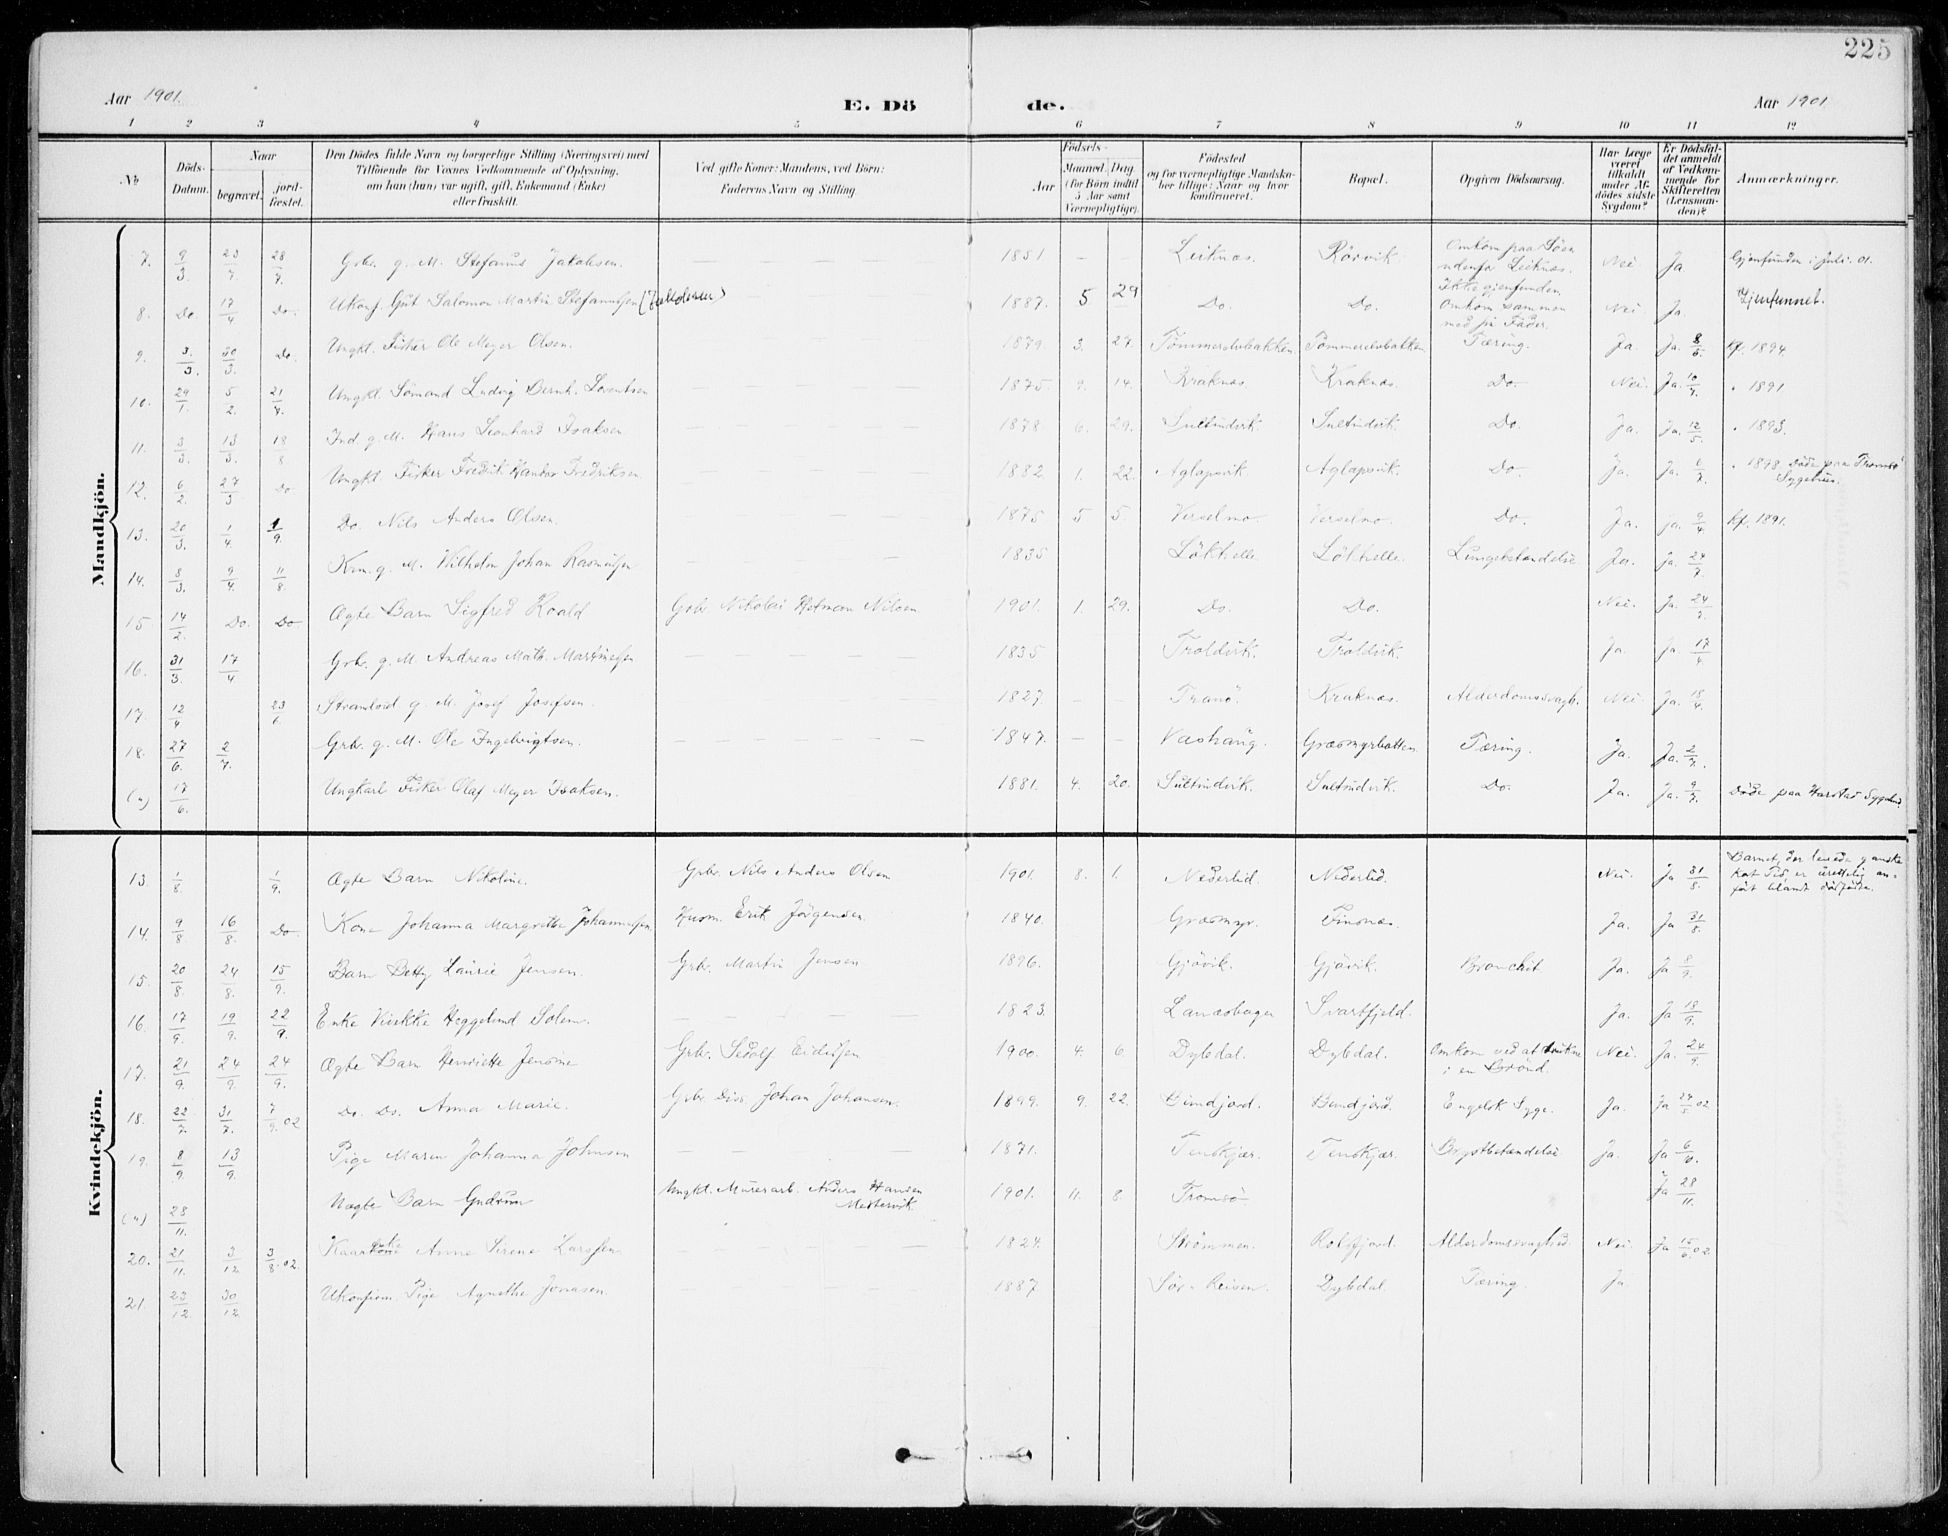 225
Aar 1901. E. Dö de. Aar 1901
1 2 3 4 5 6 7 8 9 10 11 12
No. Döds-Datum. Naar begravet. jord-fæstet. Den Dödes fulde Navn og borgerlige Stilling (Næringsvei) med Tilföiende for Voxnes Vedkommende af Oplysning, om han (hun) var ugift, gift, Enkemand (Enke) eller fraskilt. Ved gifte Koner: Mandens, ved Börn: Faderens Navn og Stilling. Födsels- Aar Maaned. Dag. (for Börn indtil 5 Aar samt Værnepligtige). Födested og for værnepligtige Mandskaber tillige: Naar og hvor konfirmeret. Bopæl. Opgiven Dödsaarsag. Har Læge været tilkaldt under Afdödes sidste Sygdom? Er Dödsfaldet anmeldt af Vedkommende for Skifteretten (Lensmanden)? Anmærkninger.
Mandkjön.
7. 9/3 23/7 28/7. Grbr. g. M. Stefanus Jakobsen. 1851 – – Leiknæs. Rörvik. Omkom paa Söen udenfor Leiknæs. Ikke gjenfunden. Nei Ja Gjenfunden i Juli. 01.
8. Do. 17/4 Do. Ukonf. Gut Salomon Martin Stefanussen (Jakobsen) 1887. 5 29 Do. Do. Omkom sammen med sin Fader. Nei Ja. Gjenfunnet.
9. 3/3. 30/3. Do. Ungkl. Fisker Ole Meyer Olsen. 1879. 3. 27. Tömmerelvbakken. Tömmerelvbakken. Tæring. Ja. Ja. 8/6. Kf. 1894.
10. 29/1. 5/2. 21/7. Ungkl. Sömand Ludvig Bernh. Lorentsen 1875. 9. 14. Kraknæs. Kraknæs. Do. Nei. Ja. 10/7. " 1891
11. 3/3. 13/3. 18/8 Ind. g. M. Hans Leonhard Isaksen. 1878. 6. 29. Sultindvik. Sultindvik. Do. Ja. Ja. 12/5. " 1893.
12. 6/2. 27/3 Do Ungkl. Fisker Fredrik Fredriksen. 1882. 1. 22. Aglapsvik. Aglapsvik. Do. Ja. Ja. 1/7. " 1898. Döde paa Tromsö Sygehus.
13. 20/3. 1/4. 1/9. Do. Nils Anders Olsen. 1875 5 5. Verselmo. Verselmo. Do. Ja. Ja. 9/4 Kf. 1891.
14. 8/3. 9/4. 11/8 Krm. g. M. Wilhelm Johan Rasmussen 1835. Lökhelle Lökhelle. Lungebetændelse Ja. Ja. 24/7.
15 14/2. Do. Do Ægte Barn Sigfred Roald Grbr. Nikolai Hetman Nilsen 1901. 1. 29. Do. Do. Nei. Ja. 24/7.
16. 31/3. 17/4 Grbr. g. M. Andreas Math. Martinesen 1835 Troldvik. Troldvik. Ja. Ja. 17/4.
17. 12/4 23/6. g. M. Josef Josefsen. 1827. – – Tranö. Kraknæs. Alderdomssvagh. Nei. Ja. 18/4.
18. 27/6. 2/7. Grb. g. M. Ole Ingebrigtsen. 1847. – – Vashaug. Græsmyrbotten. Tæring. Ja. Ja. 2/7.
(n) 17/6. Ungkarl Fisker Olaf Meyer Isaksen. 1881. 4. 20. Sultindvik. Sultindvik. Do. Ja. Ja. 9/7. Döde paa Harstad Sygehus.
Kvindekjön.
13. 1/8. 1/9. Ægte Barn Nikoline. Grbr. Nils Anders Olsen 1901. 8. 1. Nederlid. Nederlid. Nei. Ja 31/8. Barnet, der levede ganske kort Tid, er urettelig anfört blandt dödfödte.
14. 9/8 16/8. Do. Kone Johanna Margrethe Johannessen. Husm. Erik Jörgensen. 1840. Græsmyr. Finsnæs. Ja. Ja 31/8.
15. 20/8. 24/8. 15/9. Barn Betty Laurie Jensen. Grb. Martin Jensen 1896. Gjövik. Gjövik. Bronchit Ja. Ja 8/9.
16. 17/9. 19/9. 22/9. Enke Heggelund Solem. 1823. Lanæsbagen Svartfjeld. Ja. Ja 18/9.
17. 21/9. 24/9. 24/9. Ægte Barn Henriette Jensine Grb. Sedolf Eidissen 1900. 4. 6. Dybdal. Dybdal. Omkom ved at drukne i en Brönd. Nei. Ja. 24/9.
18. 22/7. 31/7. 7/9.02 Do. Ds. Anna Marie. Grbr. Diss. Johan Johansen. 1899. 9. 22. Bundjord. Bundjord. Engelsk Syge. Ja. Ja 24/5.02
19. 8/9. 13/9. Pige Maren Johanna Johnsen 1871. Tenskjær. Tenskjær. Brystbetændelse Ja. Ja 6/10.
(n) 28/11. Uægte Barn Gudrun Ungkl. Murerarb. Anders Hansen Mestervik. 1901. 11. 8. Tromsö Ja 28/11.
20. 21/11. 3/12 3/8.02 Kaarenke Anne Sirene Larssen 1824. Strömmen. Rossfjord. Alderdomssvaghed. Nei. Ja 15/6.02
21. 23/12 30/12 Ukonfirm. Pige Agnethe Jonasen. 1887 Sör-Reisen. Dybdal. Tæring. Ja